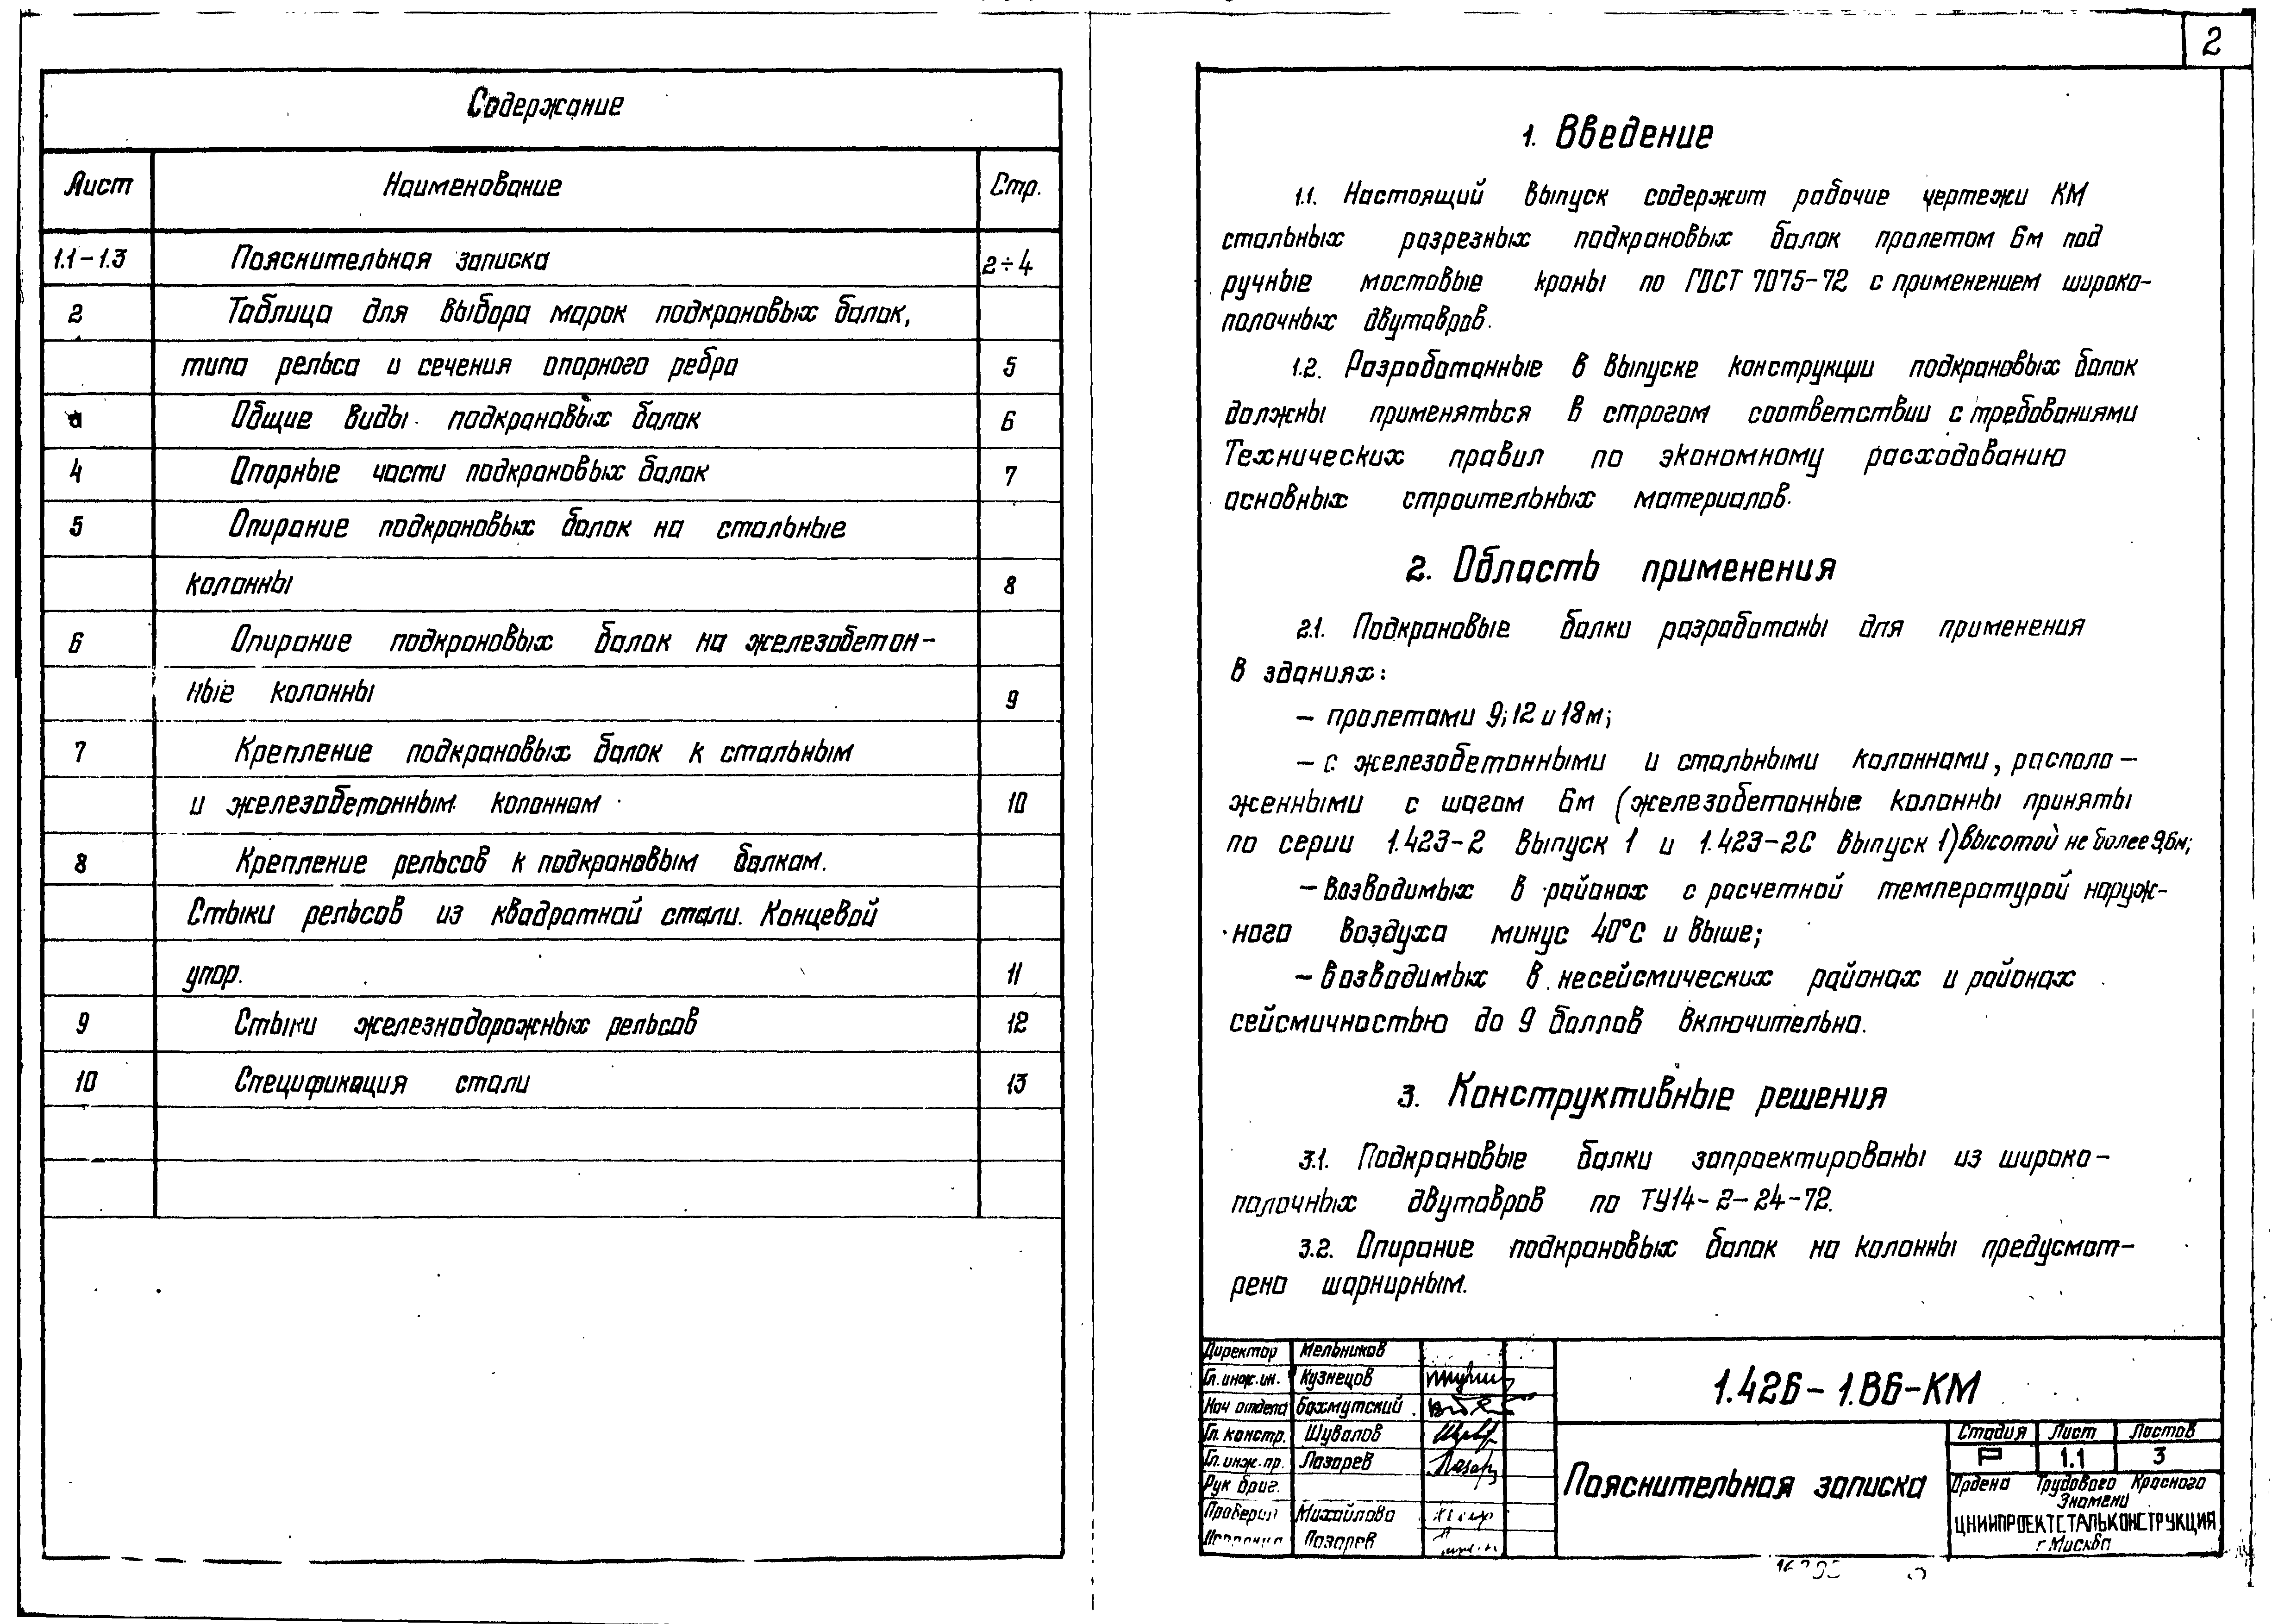 2
Содержание
Лист Наименование Стр.
1.1-1.3 Пояснительная записка 2÷4
2 Таблица для выбора марок подкрановых балок,
типа рельса и сечения опорного ребра 5
Общие виды подкрановых балок 6
4 Опорные части подкрановых балок 7
5 Опирание подкрановых балок на стальные
колонны 8
6 Опирание подкрановых балок на железобетон-
ные колонны 9
7 Крепление подкрановых балок к стальным
и железобетонным колоннам 10
8 Крепление рельсов к подкрановым балкам.
Стыки рельсов из квадратной стали. Концевой
упор. 11
9 Стыки железнодорожных рельсов 12
10 Спецификация стали 13
1. Введение
1.1. Настоящий выпуск содержит рабочие чертежи КМ
стальных разрезных подкрановых балок пролетом 6м под
ручные мостовые краны по ГОСТ 7075-72 с применением широко-
полочных двутавров.
1.2. Разработанные в выпуске конструкции подкрановых балок
должны применяться в строгом соответствии с требованиями
Технических правил по экономному расходованию
основных строительных материалов.
2. Область применения
2.1. Подкрановые балки разработаны для применения
в зданиях:
- пролетами 9; 12 и 18м;
- с железобетонными и стальными колоннами, располо-
женными с шагом 6м (железобетонные колонны приняты
по серии 1.423-2 выпуск 1 и 1.423-2С выпуск 1) высотой не более 9,6м;
- возводимых в районах с расчетной температурой наруж-
ного воздуха минус 40°С и выше;
- возводимых в несейсмических районах и районах
сейсмичностью до 9 баллов включительно.
3. Конструктивные решения
3.1. Подкрановые балки запроектированы из широко-
полочных двутавров по ТУ14-2-24-72.
3.2. Опирание подкрановых балок на колонны предусмот-
рено шарнирным.
Директор Мельников
Гл. инж. ин. Кузнецов
Нач отдела Бахмутский
Гл. констр. Шувалов
Гл. инж. пр. Лазарев
Рук бриг.
Проверил Михайлова
Лазарев
1.426-1.В6-КМ
Пояснительная записка
Стадия Лист Листов
Р 1.1 3
Ордена Трудового Красного
Знамени
ЦНИИПРОЕКТСТАЛЬКОНСТРУКЦИЯ
г Москва